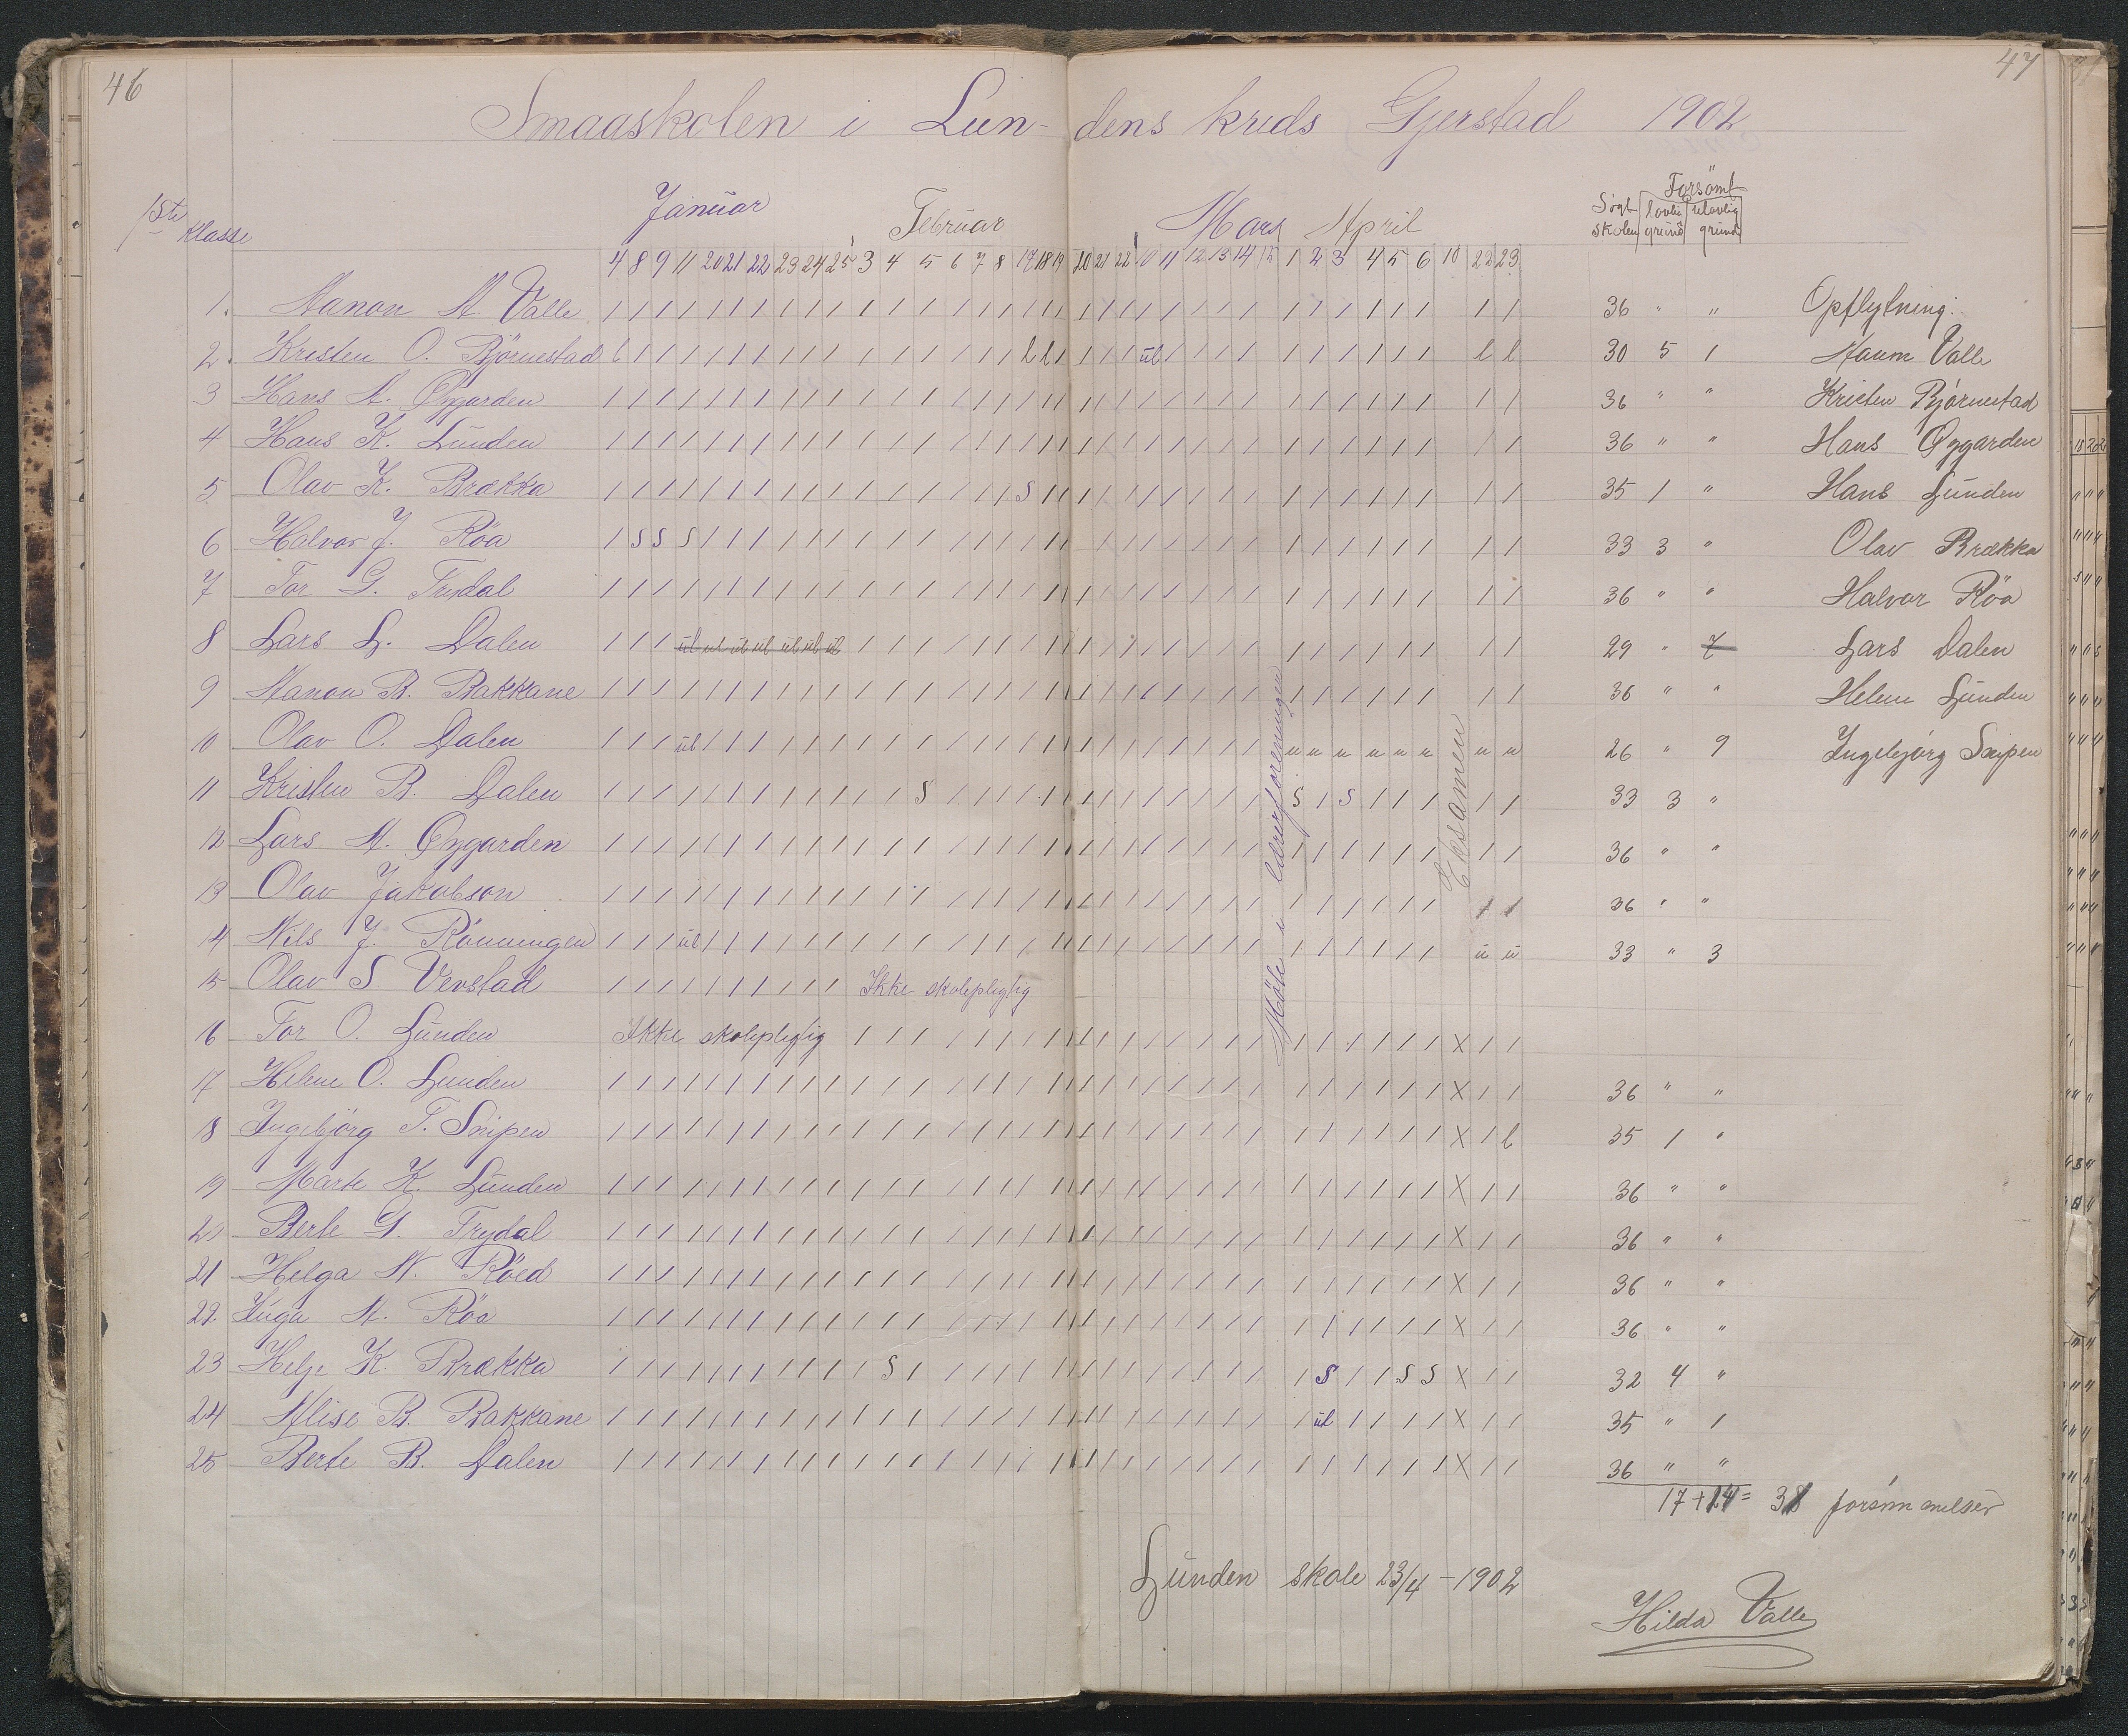 46
47
Smaaskolen i Lundens kreds Gjerstad 1902
1ste klasse
Januar Februar Mars April
Søgt skolen Forsømt lovlig grund ulovlig grund
4 8 9 11 20 21 22 23 24 25 3 4 5 6 7 8 17 18 19 20 21 22 10 11 12 13 14 15 1 2 3 4 5 6 10 22 23
1. Aanon A. Valle 36 " " Opflytning:
2. Kristen O. Björnestad 30 5 1 Aanon Valle
3 Hans A. Øygarden 36 " " Kristen Björnestad
4 Hans K. Lunden 36 " " Hans Øygarden
5 Olav K. Brækka 35 1 " Hans Lunden
6 Halvor J. Röa 33 3 " Olav Brækka
7 Tor G. Trydal 36 " " Halvor Röa
8 Lars L. Dalen ul ul ul ul ul ul ul 29 " 7 Lars Dalen
9 Aanon B. Bakkane 36 " " Helene Lunden
10 Olav O. Dalen ul u u u u u u u u 26 " 9 Ingebjörg Snipen
11 Kristen B. Dalen s s s 33 3 "
12 Lars A. Øygarden 36 " "
13 Olav Jakobson 36 " "
14 Nils J. Rönningen ul u u 33 " 3
15 Olav S. Vevstad Ikke skolepligtig
16 Tor O. Lunden Ikke skolepligtig
17 Helene O. Lunden 36 " "
18 Ingebjörg T. Snipen 35 1 "
19 Marte K. Lunden 36 " "
20 Berte G. Trydal 36 " "
21 Helga N. Röed 36 " "
22. Inga A. Röa 36 " "
23 Helje K. Brækka s s s s 32 4 "
24 Alise B. Bakkane ul 35 " 1
25 Berte B. Dalen 36 " "
Möte i lærerforeningen
Eksamen
17 + 14 = 31 forsömmelser
Lunden skole 23/4 - 1902
Hilda Valle